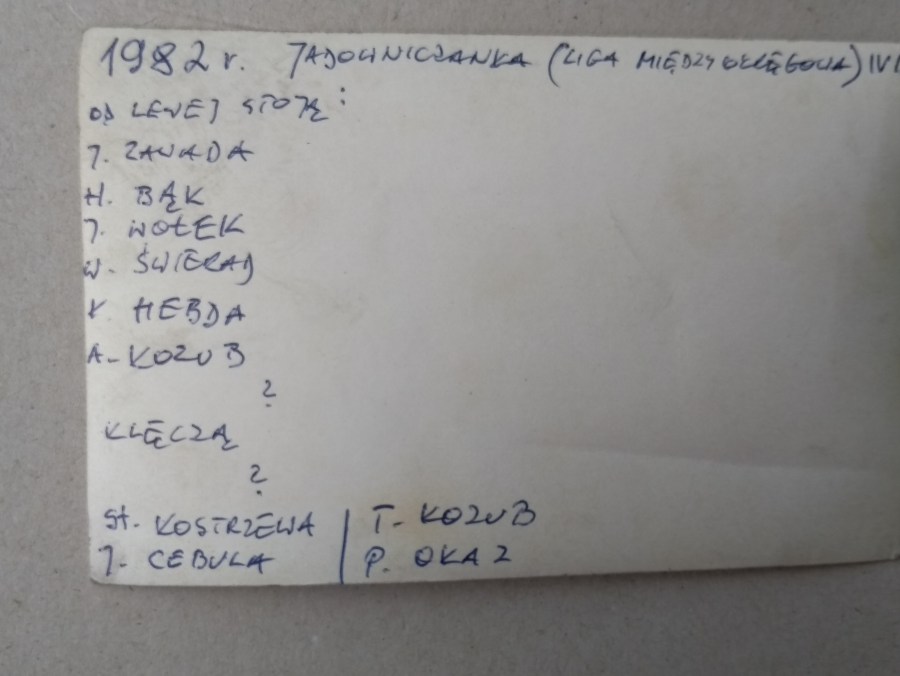 1982 r. JADOWNICZANKA (LIGA MIĘDZYOKRĘGOWA) IV
OD LEWEJ STOJĄ:
J. ZAWADA
H. BĄK
J. WOŁEK
W. ŚWIERAD
K HEBDA
A. KOZUB
?
KLĘCZĄ
?
ST. KOSTRZEWA | T. KOZUB
J. CEBULA | P. OKAZ